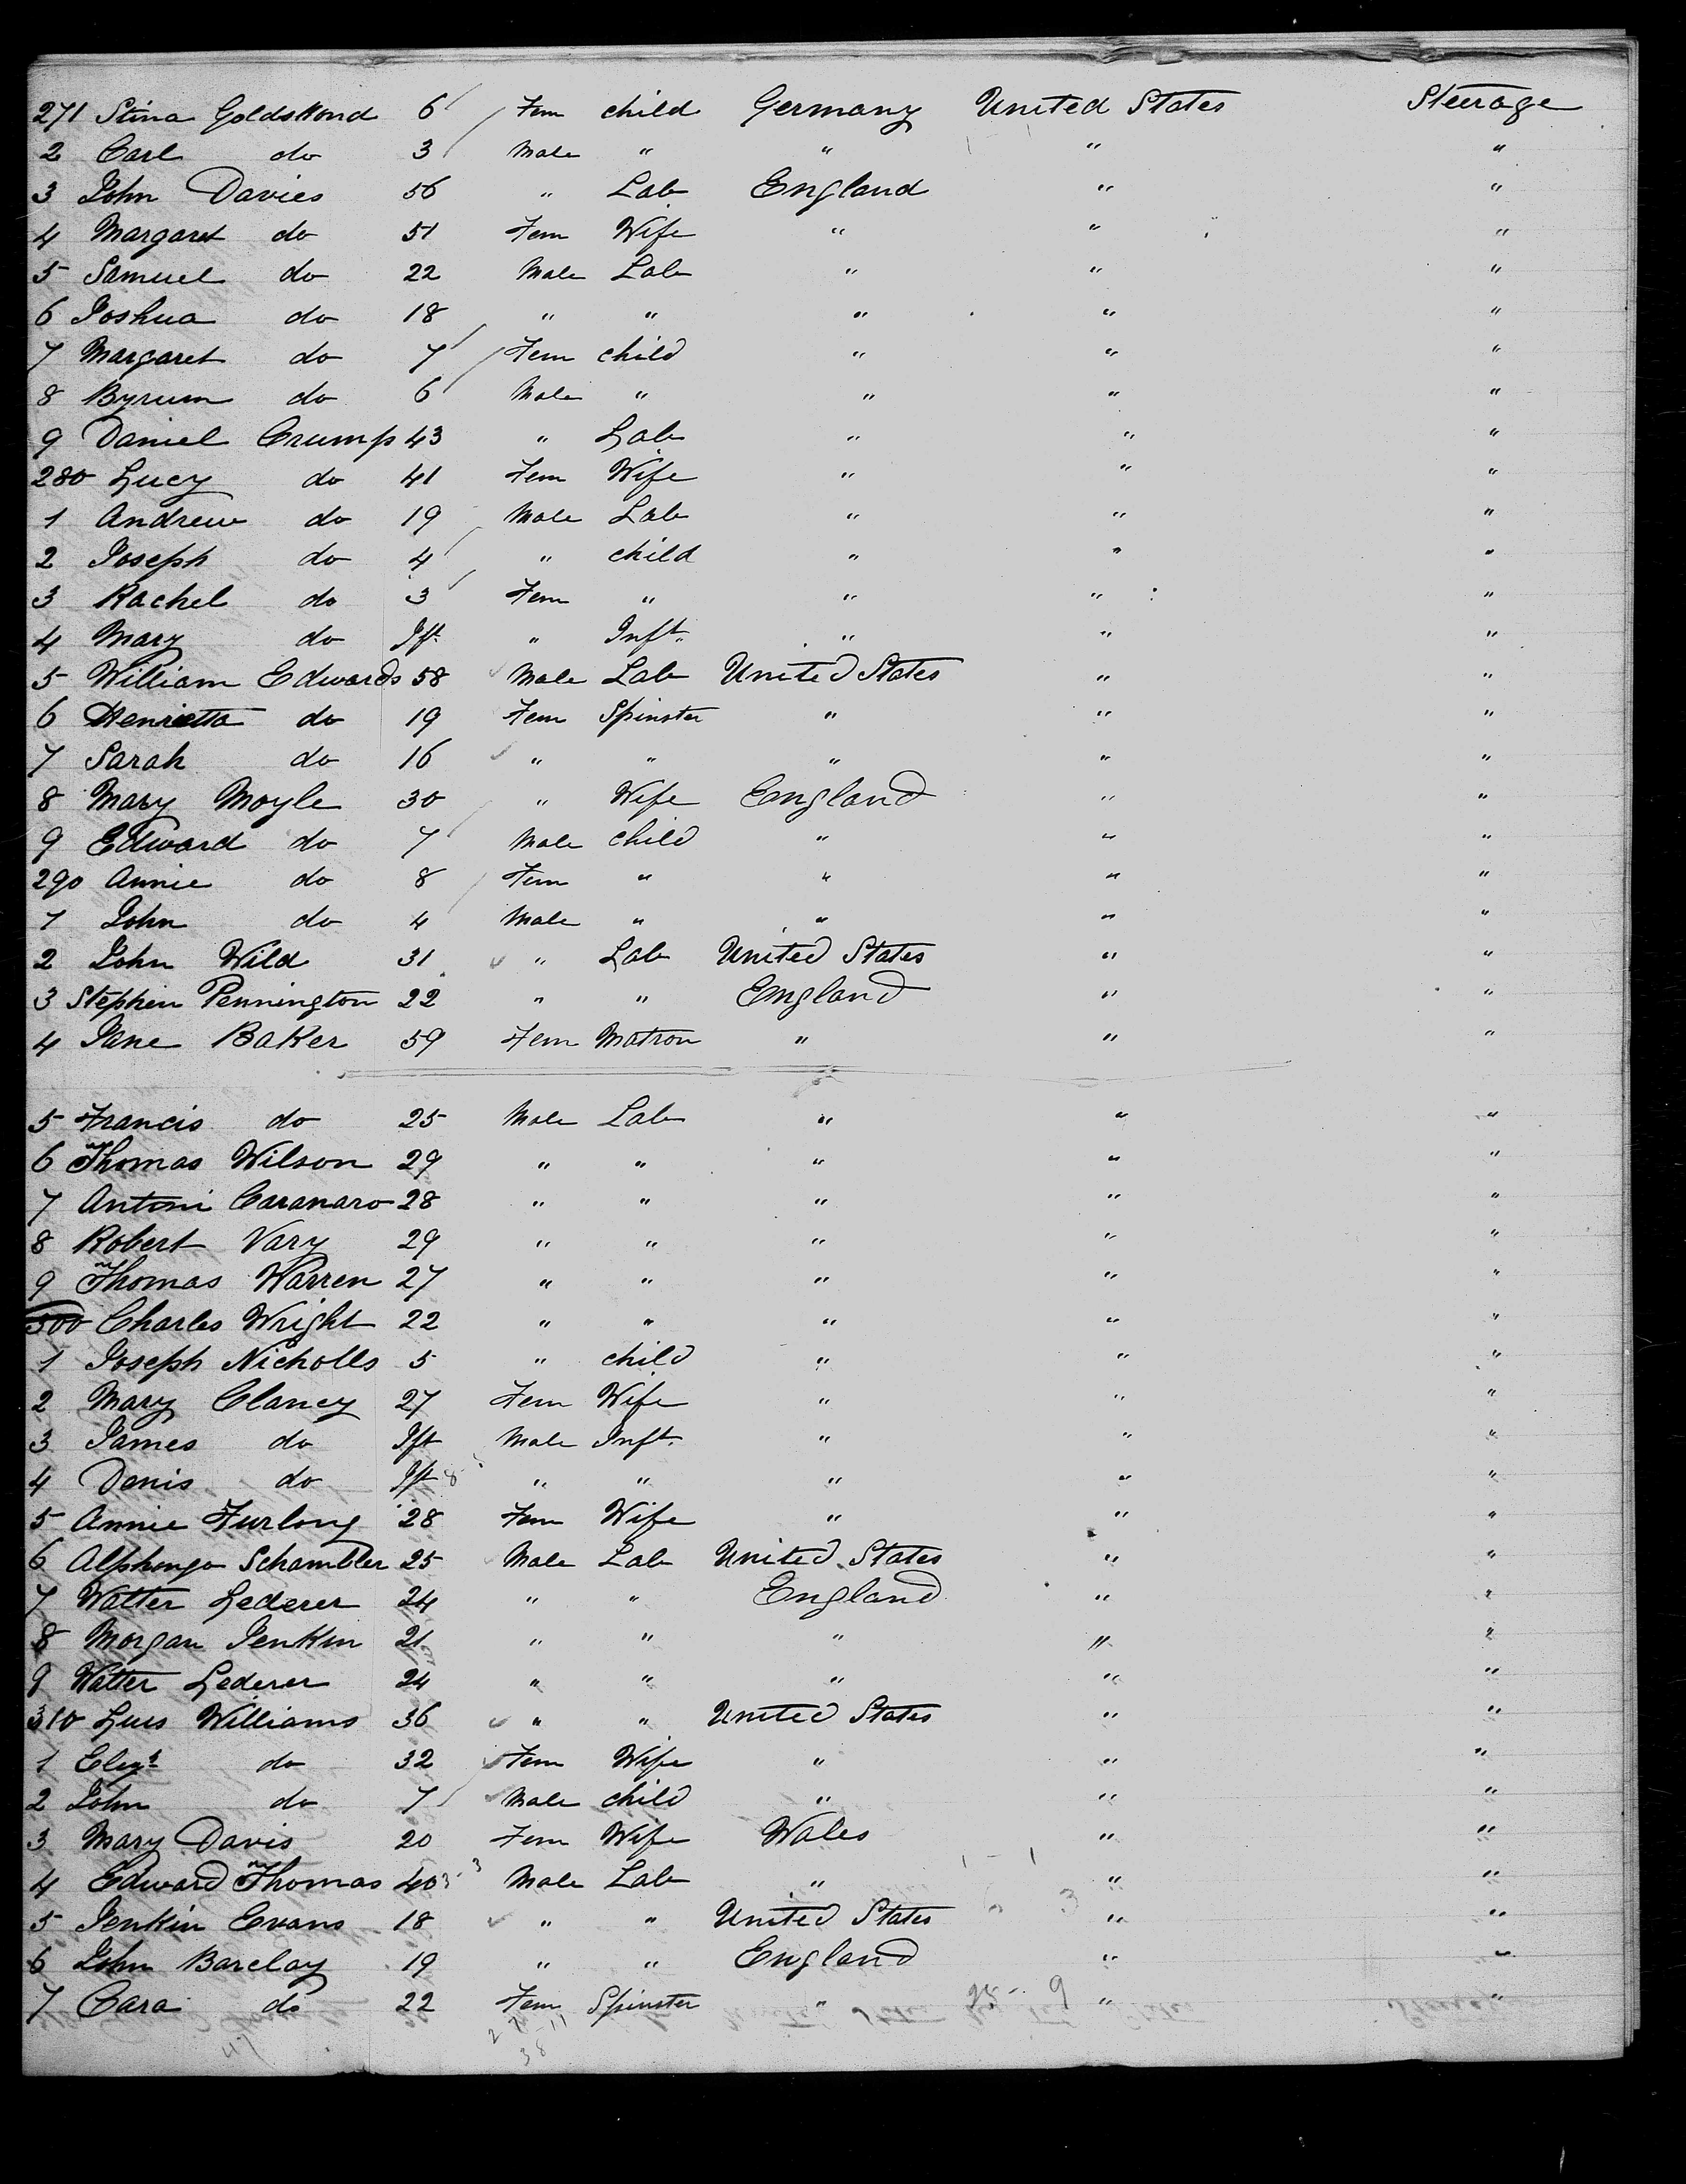 271 Stina Goldskond 6 Fem child Germany United States Steerage
2 Carl do 3 Male " " " "
3 John Davies 56 " Lab England " "
4 Margaret do 51 Fem Wife " " "
5 Samuel do 22 Male Lab " " "
6 Joshua do 18 " " " " "
7 Margaret do 7 Fem child " " "
8 Byrum do 6 Male " " " "
9 Daniel Crump 43 " Lab " " "
280 Lucy do 41 Fem Wife " " "
1 Andrew do 19 Male Lab " " "
2 Joseph do 4 " child " " "
3 Rachel do 3 Fem " " " "
4 Mary do Ift " Inft. " " "
5 William Edwards 58 Male Lab United States " "
6 Henrietta do 19 Fem Spinster " " "
7 Sarah do 16 " " " " "
8 Mary Moyle 30 " Wife England " "
9 Edward do 7 Male child " " "
290 Annie do 8 Fem " " " "
1 John do 4 Male " " " "
2 John Wild 31 " Lab United States " "
3 Stephen Pennington 22 " " England " "
4 Jane Baker 59 Fem Matron " " "
5 Francis do 25 Male Lab " " "
6 Thomas Wilson 29 " " " " "
7 Antoni Caranaro 28 " " " " "
8 Robert Vary 29 " " " " "
9 Thomas Warren 27 " " " " "
300 Charles Wright 22 " " " " "
1 Joseph Nicholls 5 " child " " "
2 Mary Clancy 27 Fem Wife " " "
3 James do Ift Male Inft. " " "
4 Denis do Ift " " " " "
5 Annie Furlong 28 Fem Wife " " "
6 Alphongo Schambler 25 Male Lab United States " "
7 Walter Lederer 24 " " England " "
8 Morgan Jenkin 21 " " " " "
9 Walter Lederer 24 " " " " "
310 Luis Williams 36 " " United States " "
1 Eliz do 32 Fem Wife " " "
2 John do 7 Male child " " "
3 Mary Davis 20 Fem Wife Wales " "
4 Edward Thomas 40 Male Lab " " "
5 Jenkin Evans 18 " " United States " "
6 John Barclay 19 " " England " "
7 Cara do 22 Fem Spinster " " "